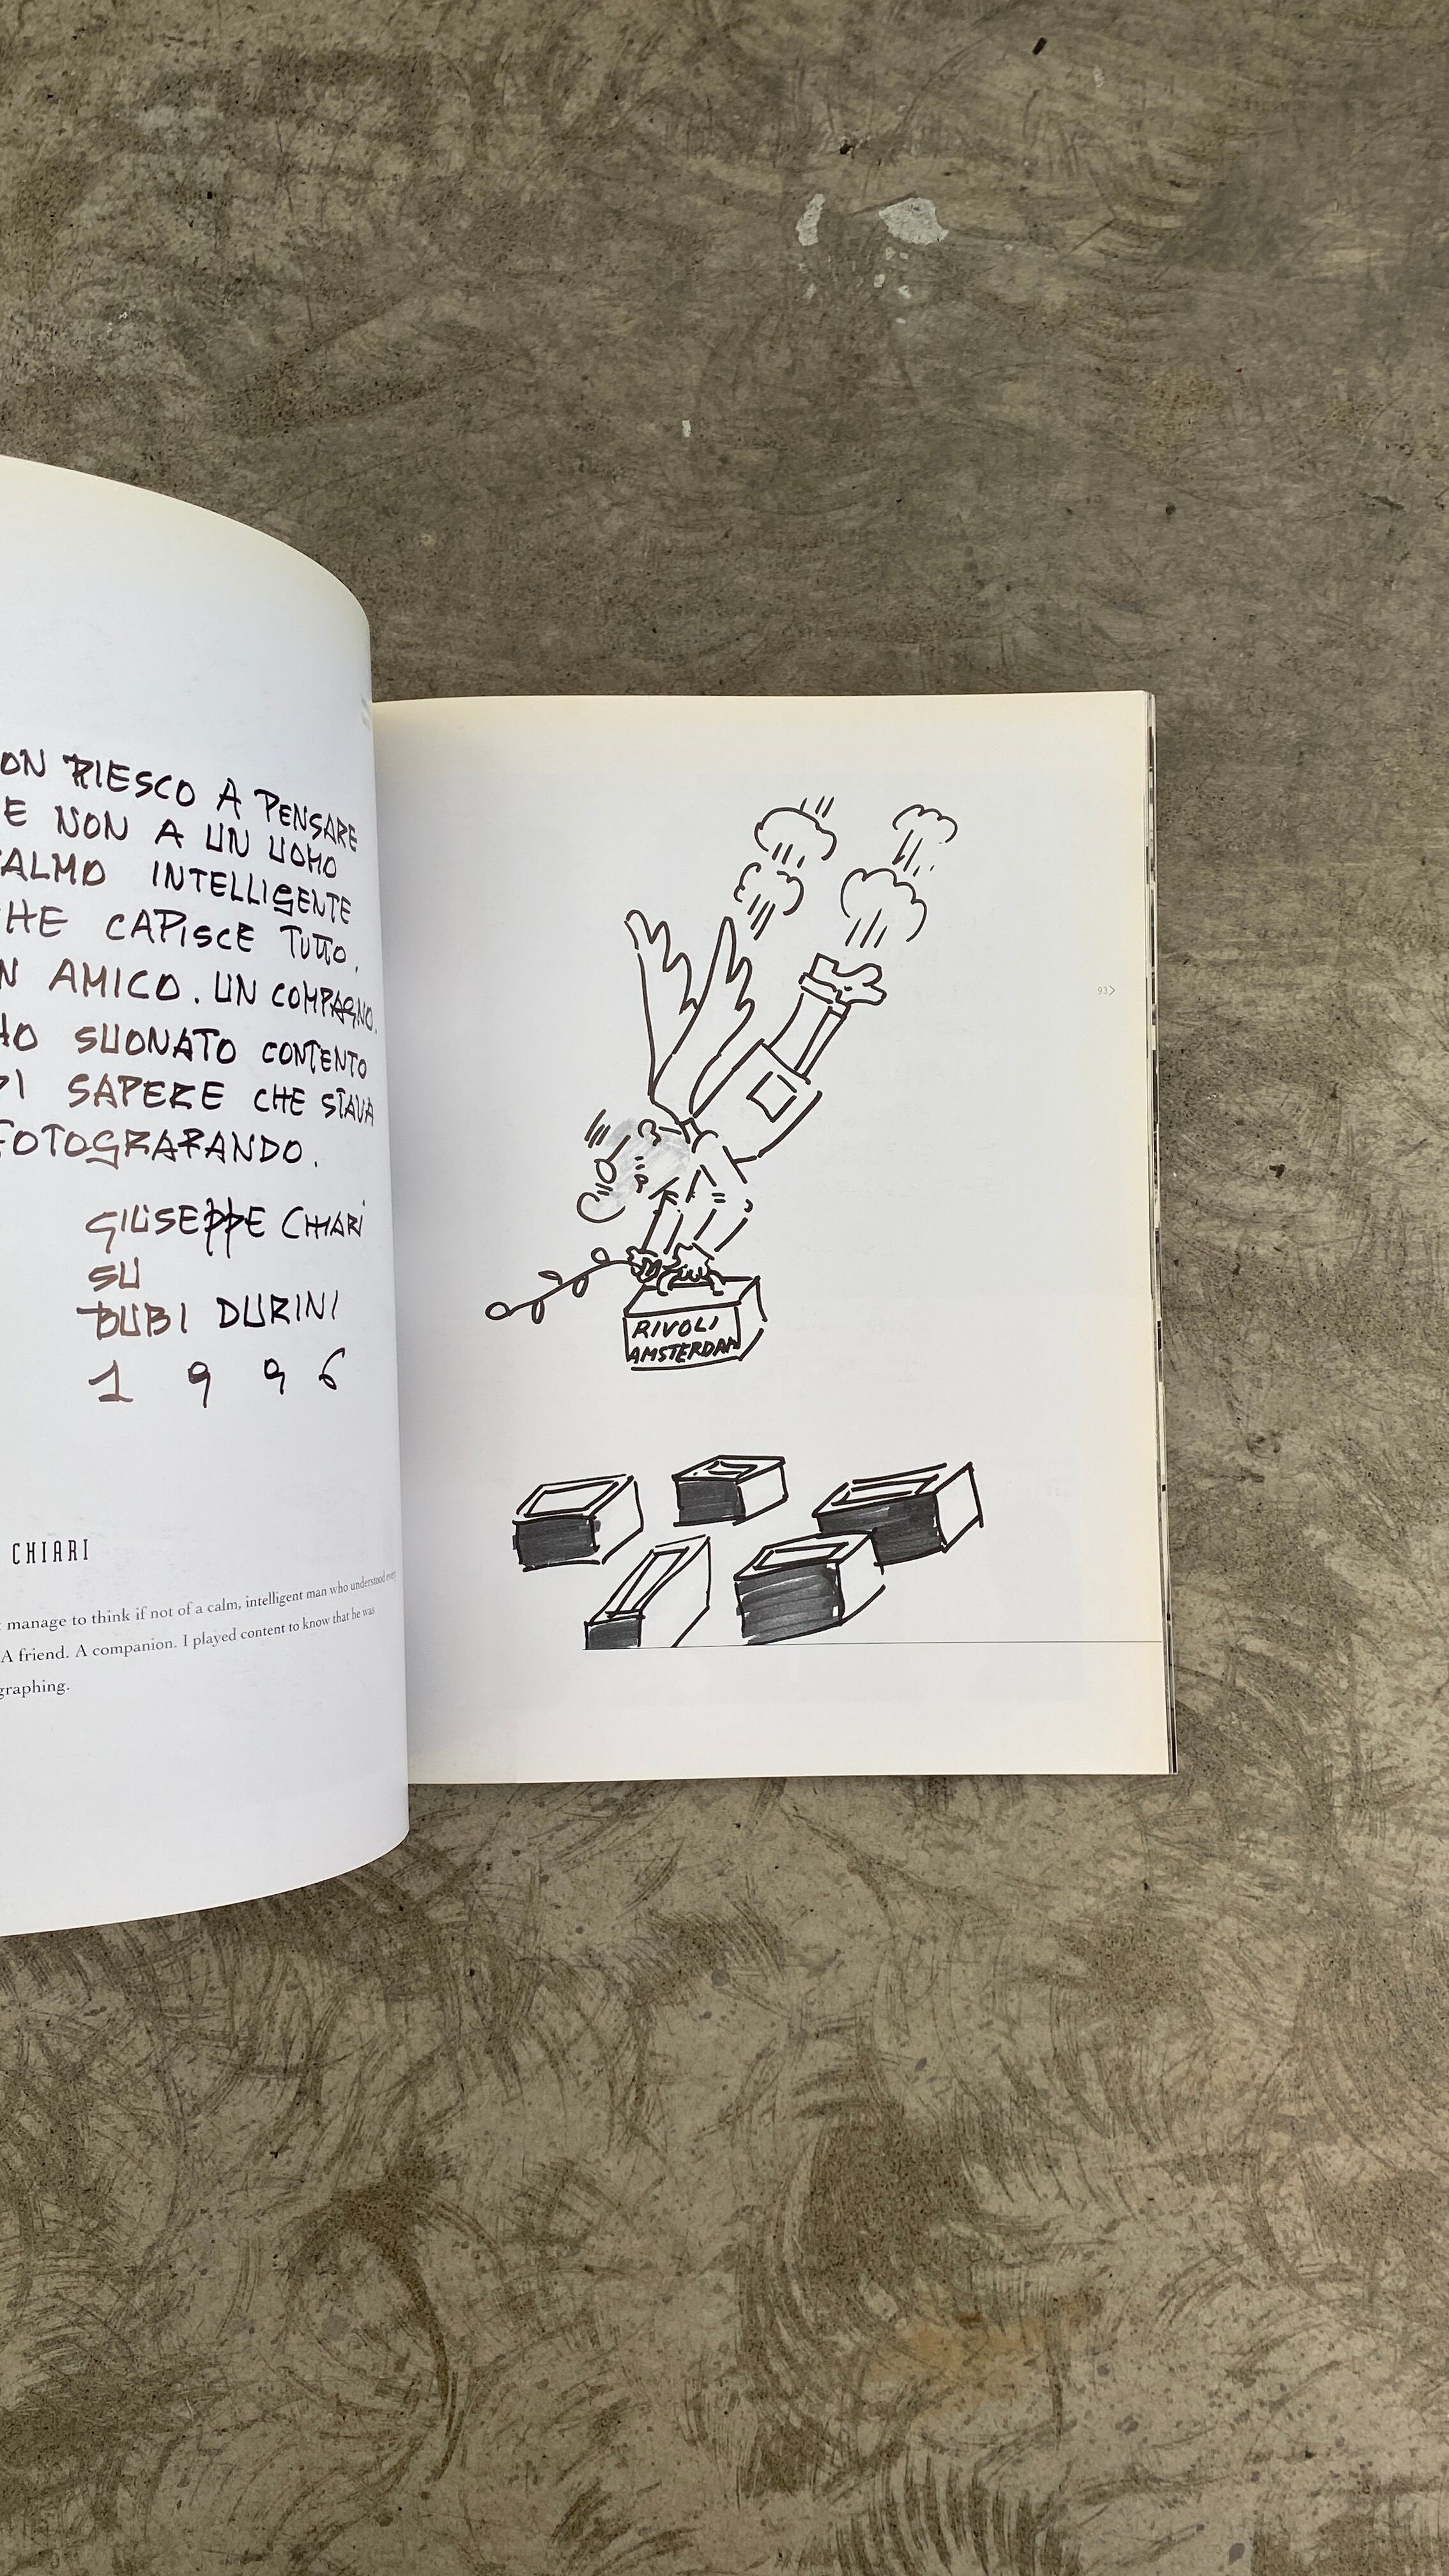 ON RIESCO A PENSARE
E NON A UN UOMO
ALMO INTELLIGENTE
HE CAPISCE TUTTO.
N AMICO. UN COMPAGNO.
HO SUONATO CONTENTO
DI SAPERE CHE STAVA
FOTOGRAFANDO.
GIUSEPPE CHIARI
SU
BUBI DURINI
1996
CHIARI
t manage to think if not of a calm, intelligent man who understood every
A friend. A companion. I played content to know that he was
graphing.
93>
RIVOLI
AMSTERDAM